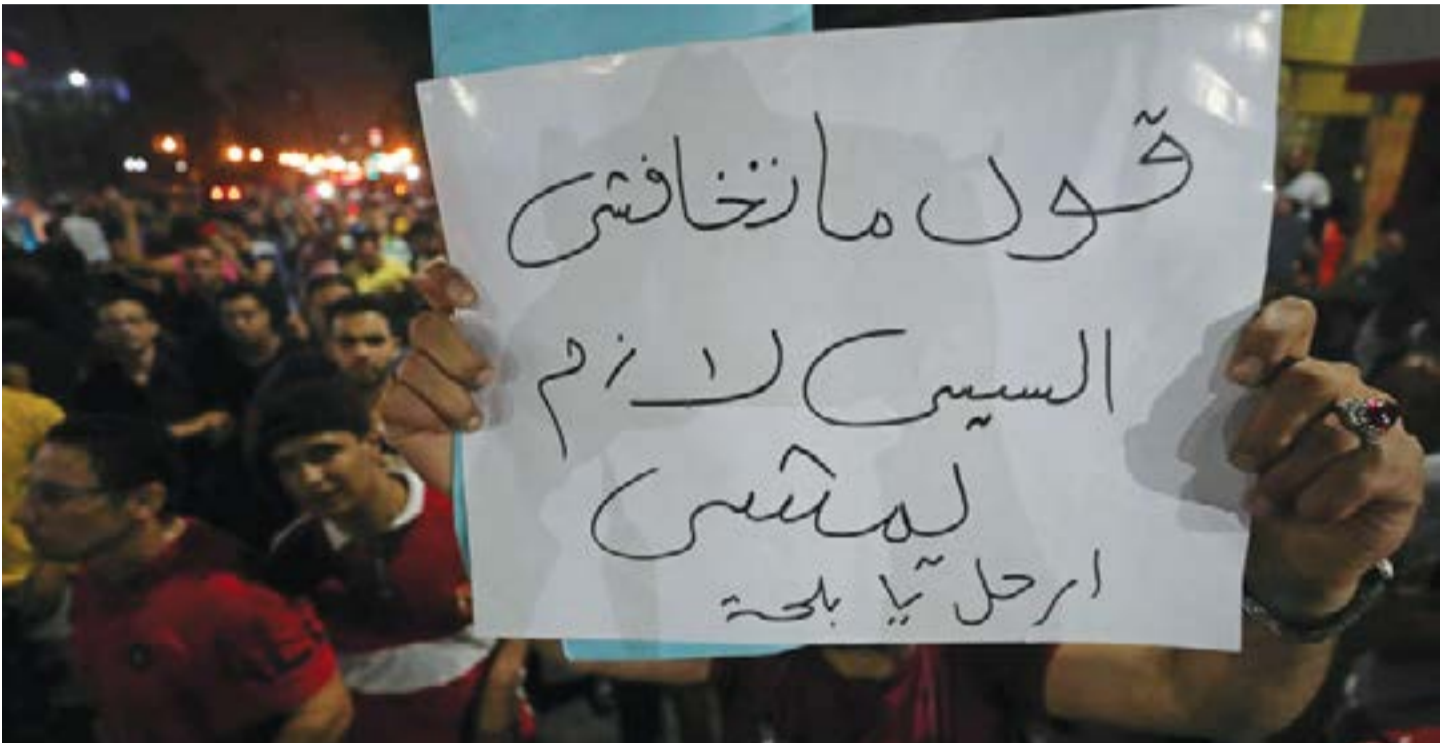 قول ماتخافش
السيسى لازم
يمشى
ارحل يا بلحة